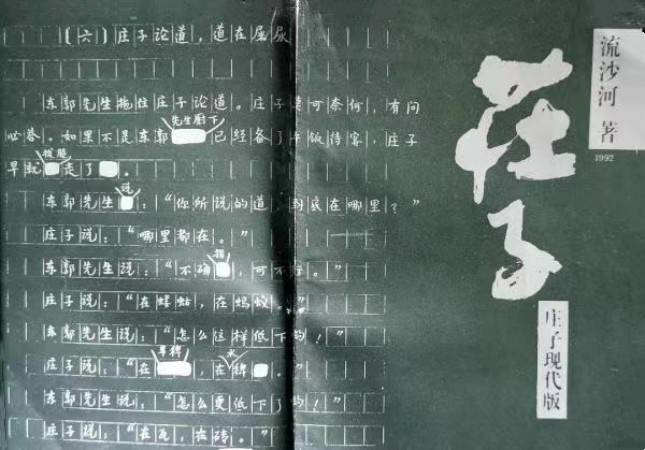 （六）庄子论道，道在屎尿
东郭先生拖住庄子论道。庄子是可奈何，有问
先生廚下
必答。如果不是东郭已经备了午饭待客，庄子
拔腿
早就走了。
说
东郭先生：“你所说的道，到底在哪里？”
庄子说：“哪里都在。”
指
东郭先生说：“不确，可不行。”
庄子说：“在蝼蛄，在蚂蚁。”
东郭先生说：“怎么这样低下的！”
庄子说：“在，在稗。”
东郭先生说：“怎么更低下了的！”
庄子说：“在瓦，在砖。”
莊子
流沙河 著
1992
庄子现代版